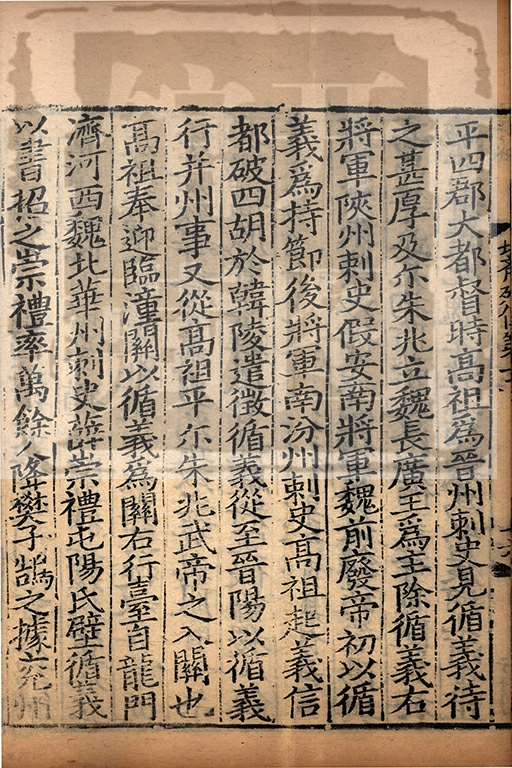 平四郡大都督時高祖為晉州刺史見循義待
之甚厚及尒朱兆立魏長廣王為主除循義右
將軍陝州刺史假安南將軍魏前廢帝初以循
義為持節後將軍南汾州刺史高祖起義信
都破四胡於韓陵遣徵循義從至晉陽以循義
行并州事又從高祖平尒朱兆武帝之入關也
高祖奉迎臨潼關以循義為關右行臺自龍門
濟河西魏北華州刺史薛崇禮屯陽氏壁循義
以書招之崇禮率萬餘人降樊子鵠之據兖州